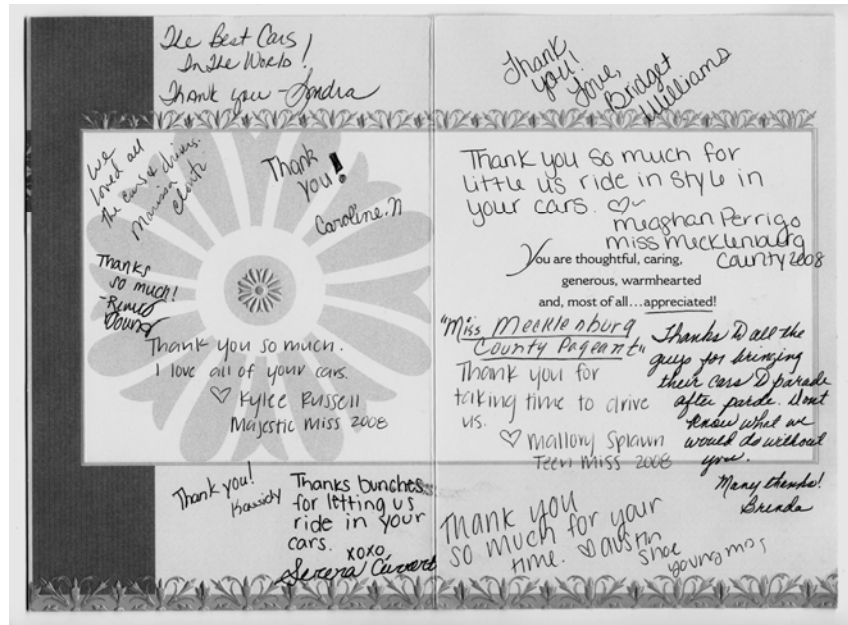 The Best Cars
In The World!
Thank you - Sondra
We
loved all
the cars & drivers.
Marissa
Thank
you!
Caroline. N
Thanks
so much!
-Renee
Thank you so much.
I love all of your cars.
♡ Kylee Russell
Majestic Miss 2008
Thank you!
Kassidy
Thanks bunches
for letting us
ride in your
cars.
xoxo,
Serera
Thank
you!
Love,
Bridget
Williams
Thank you so much for
little us ride in style in
your cars. ♡~
meaghan Perrigo
miss mecklenburg
County 2008
You are thoughtful, caring,
generous, warmhearted
and, most of all...appreciated!
"Miss Mecklenburg
County Pageant"
Thank you for
taking time to drive
us.
♡ mallory Splawn
Teen Miss 2008
Thanks to all the
guys for bringing
their cars to parade
after parde. Dont
know what we
would do without
you.
Many thanks!
Brenda
Thank you
so much for your
time. ♡ austin
Shoe
young miss